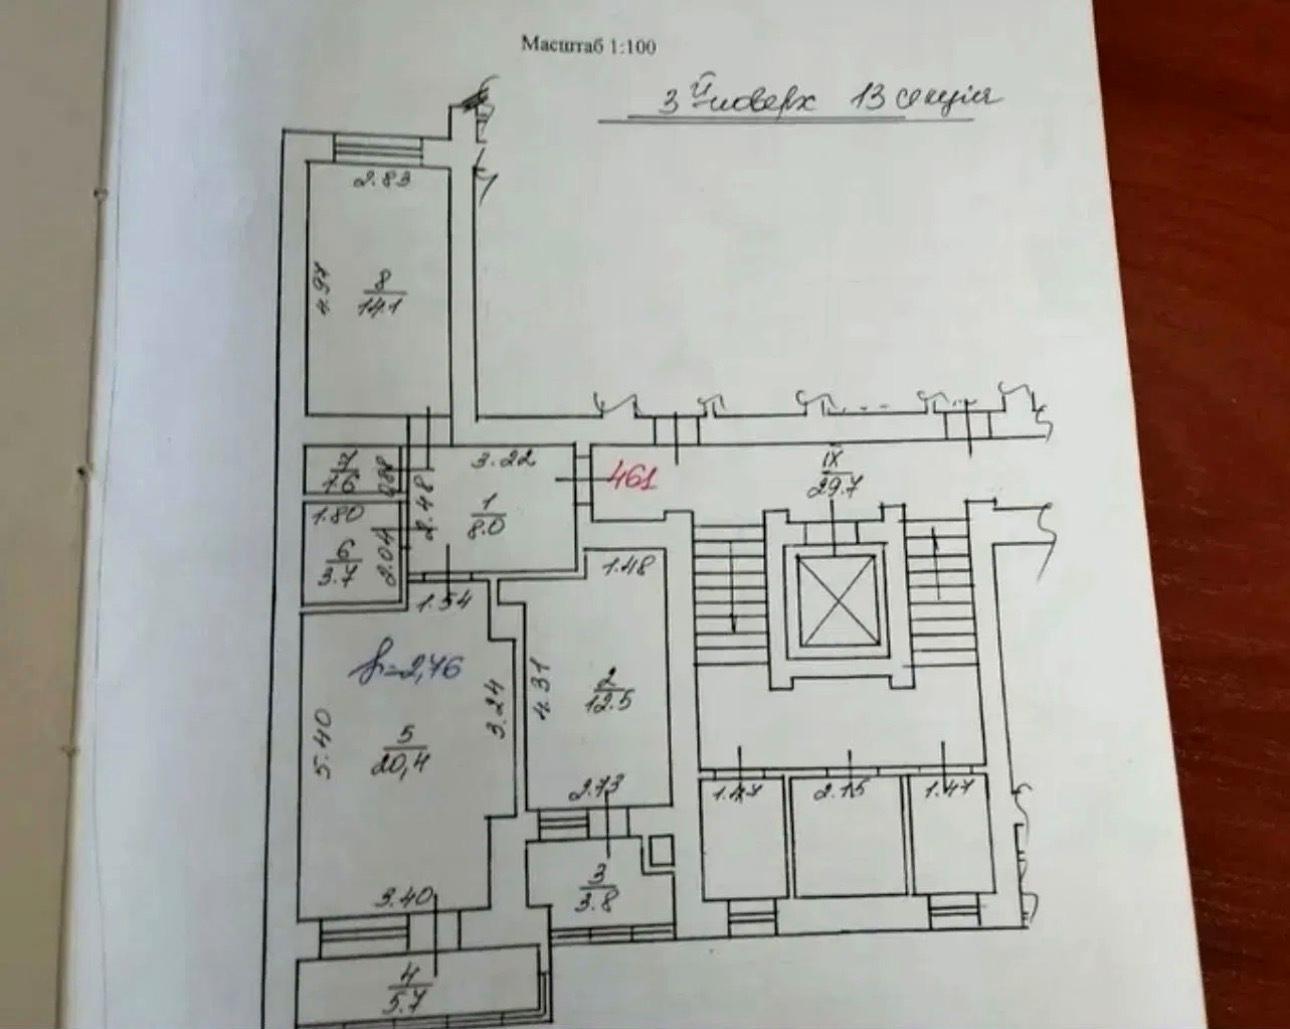 Масштаб 1:100
3й поверх 13 секція
2.83
4.97
8
14.1
7
1.6
0.88
3.22
2.48
1
8.0
461
IX
29.7
1.80
6
3.7
2.04
1.54
1.48
h=2,76
5.40
3.24
5
20,4
4.31
2
12.5
2.73
1.47
2.15
1.47
3.40
3
3.8
4
5.7